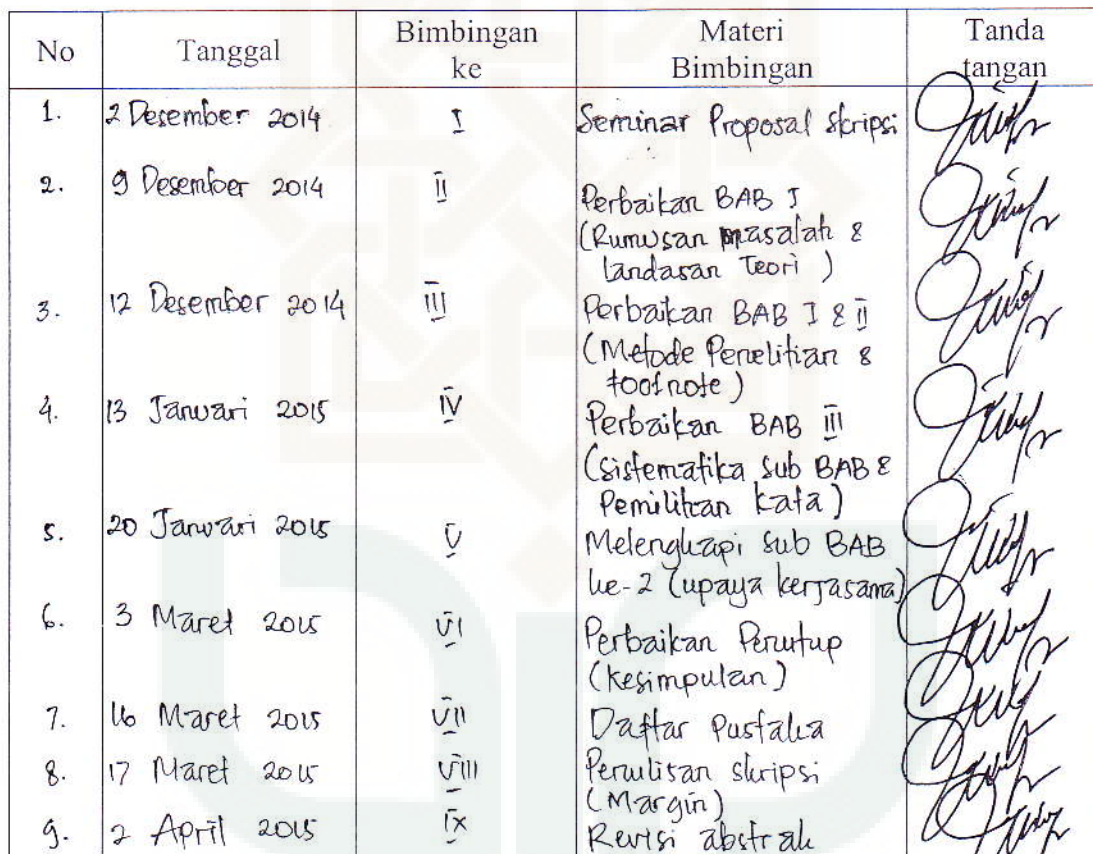 No Tanggal Bimbingan ke Materi Bimbingan Tanda tangan
1. 2 Desember 2014 I Seminar Proposal skripsi
2. 9 Desember 2014 II Perbaikan BAB I
(Rumusan masalah &
landasan Teori )
3. 12 Desember 2014 III Perbaikan BAB I & II
(Metode Penelitian &
footnote)
4. 13 Januari 2015 IV Perbaikan BAB III
(sistematika sub BAB &
Pemilihan kata)
5. 20 Januari 2015 V Melengkapi sub BAB
ke-2 (upaya kerjasama)
6. 3 Maret 2015 VI Perbaikan Penutup
(kesimpulan)
7. 16 Maret 2015 VII Daftar Pustaka
8. 17 Maret 2015 VIII Penulisan skripsi
(Margin)
9. 2 April 2015 IX Revisi abstrak